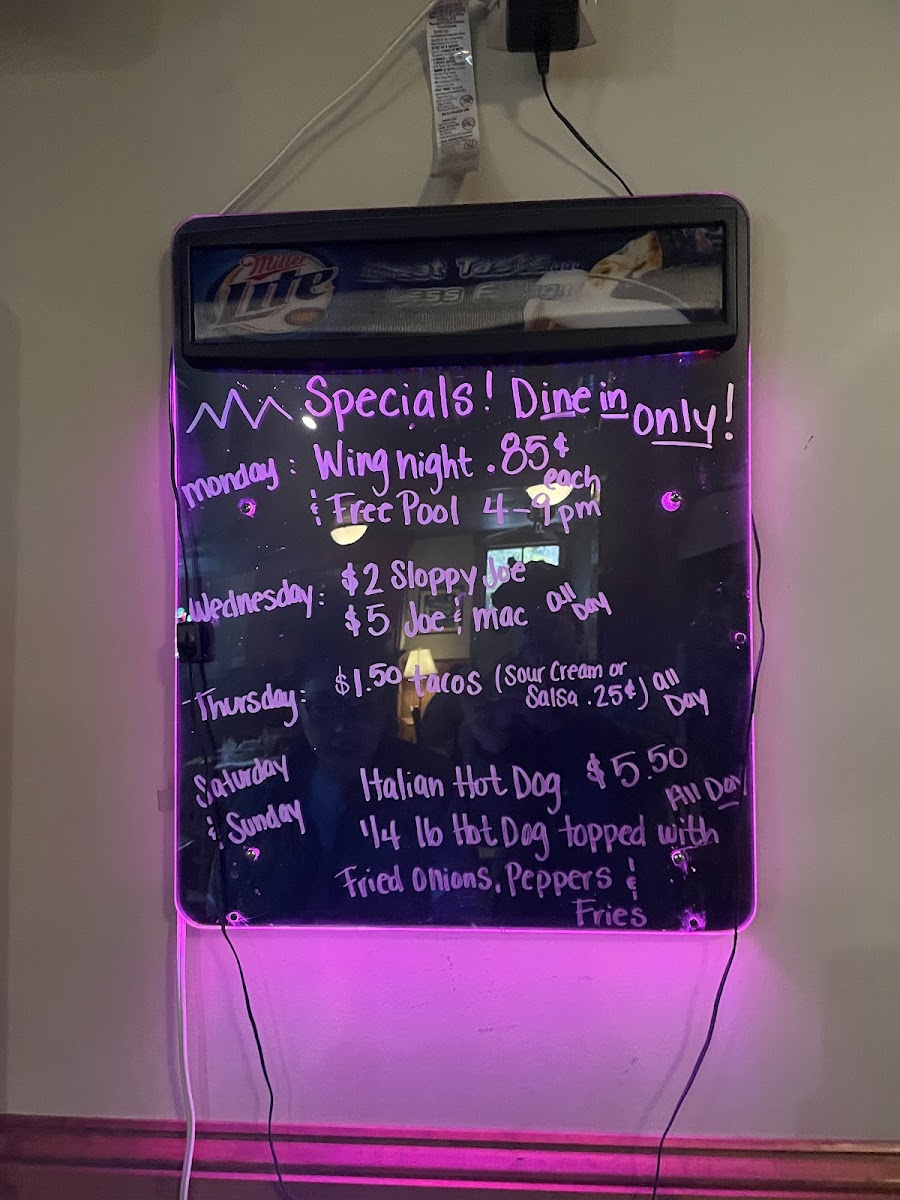 Miller
Lite
Specials! Dine in only!
Monday: Wing night .85¢ each
& Free Pool 4-9pm
Wednesday: $2 Sloppy Joe
$5 Joe & mac All Day
Thursday: $1.50 tacos (Sour Cream or
Salsa .25¢) All Day
Saturday
& Sunday
Italian Hot Dog $5.50
All Day
1/4 lb Hot Dog topped with
Fried Onions, Peppers &
Fries